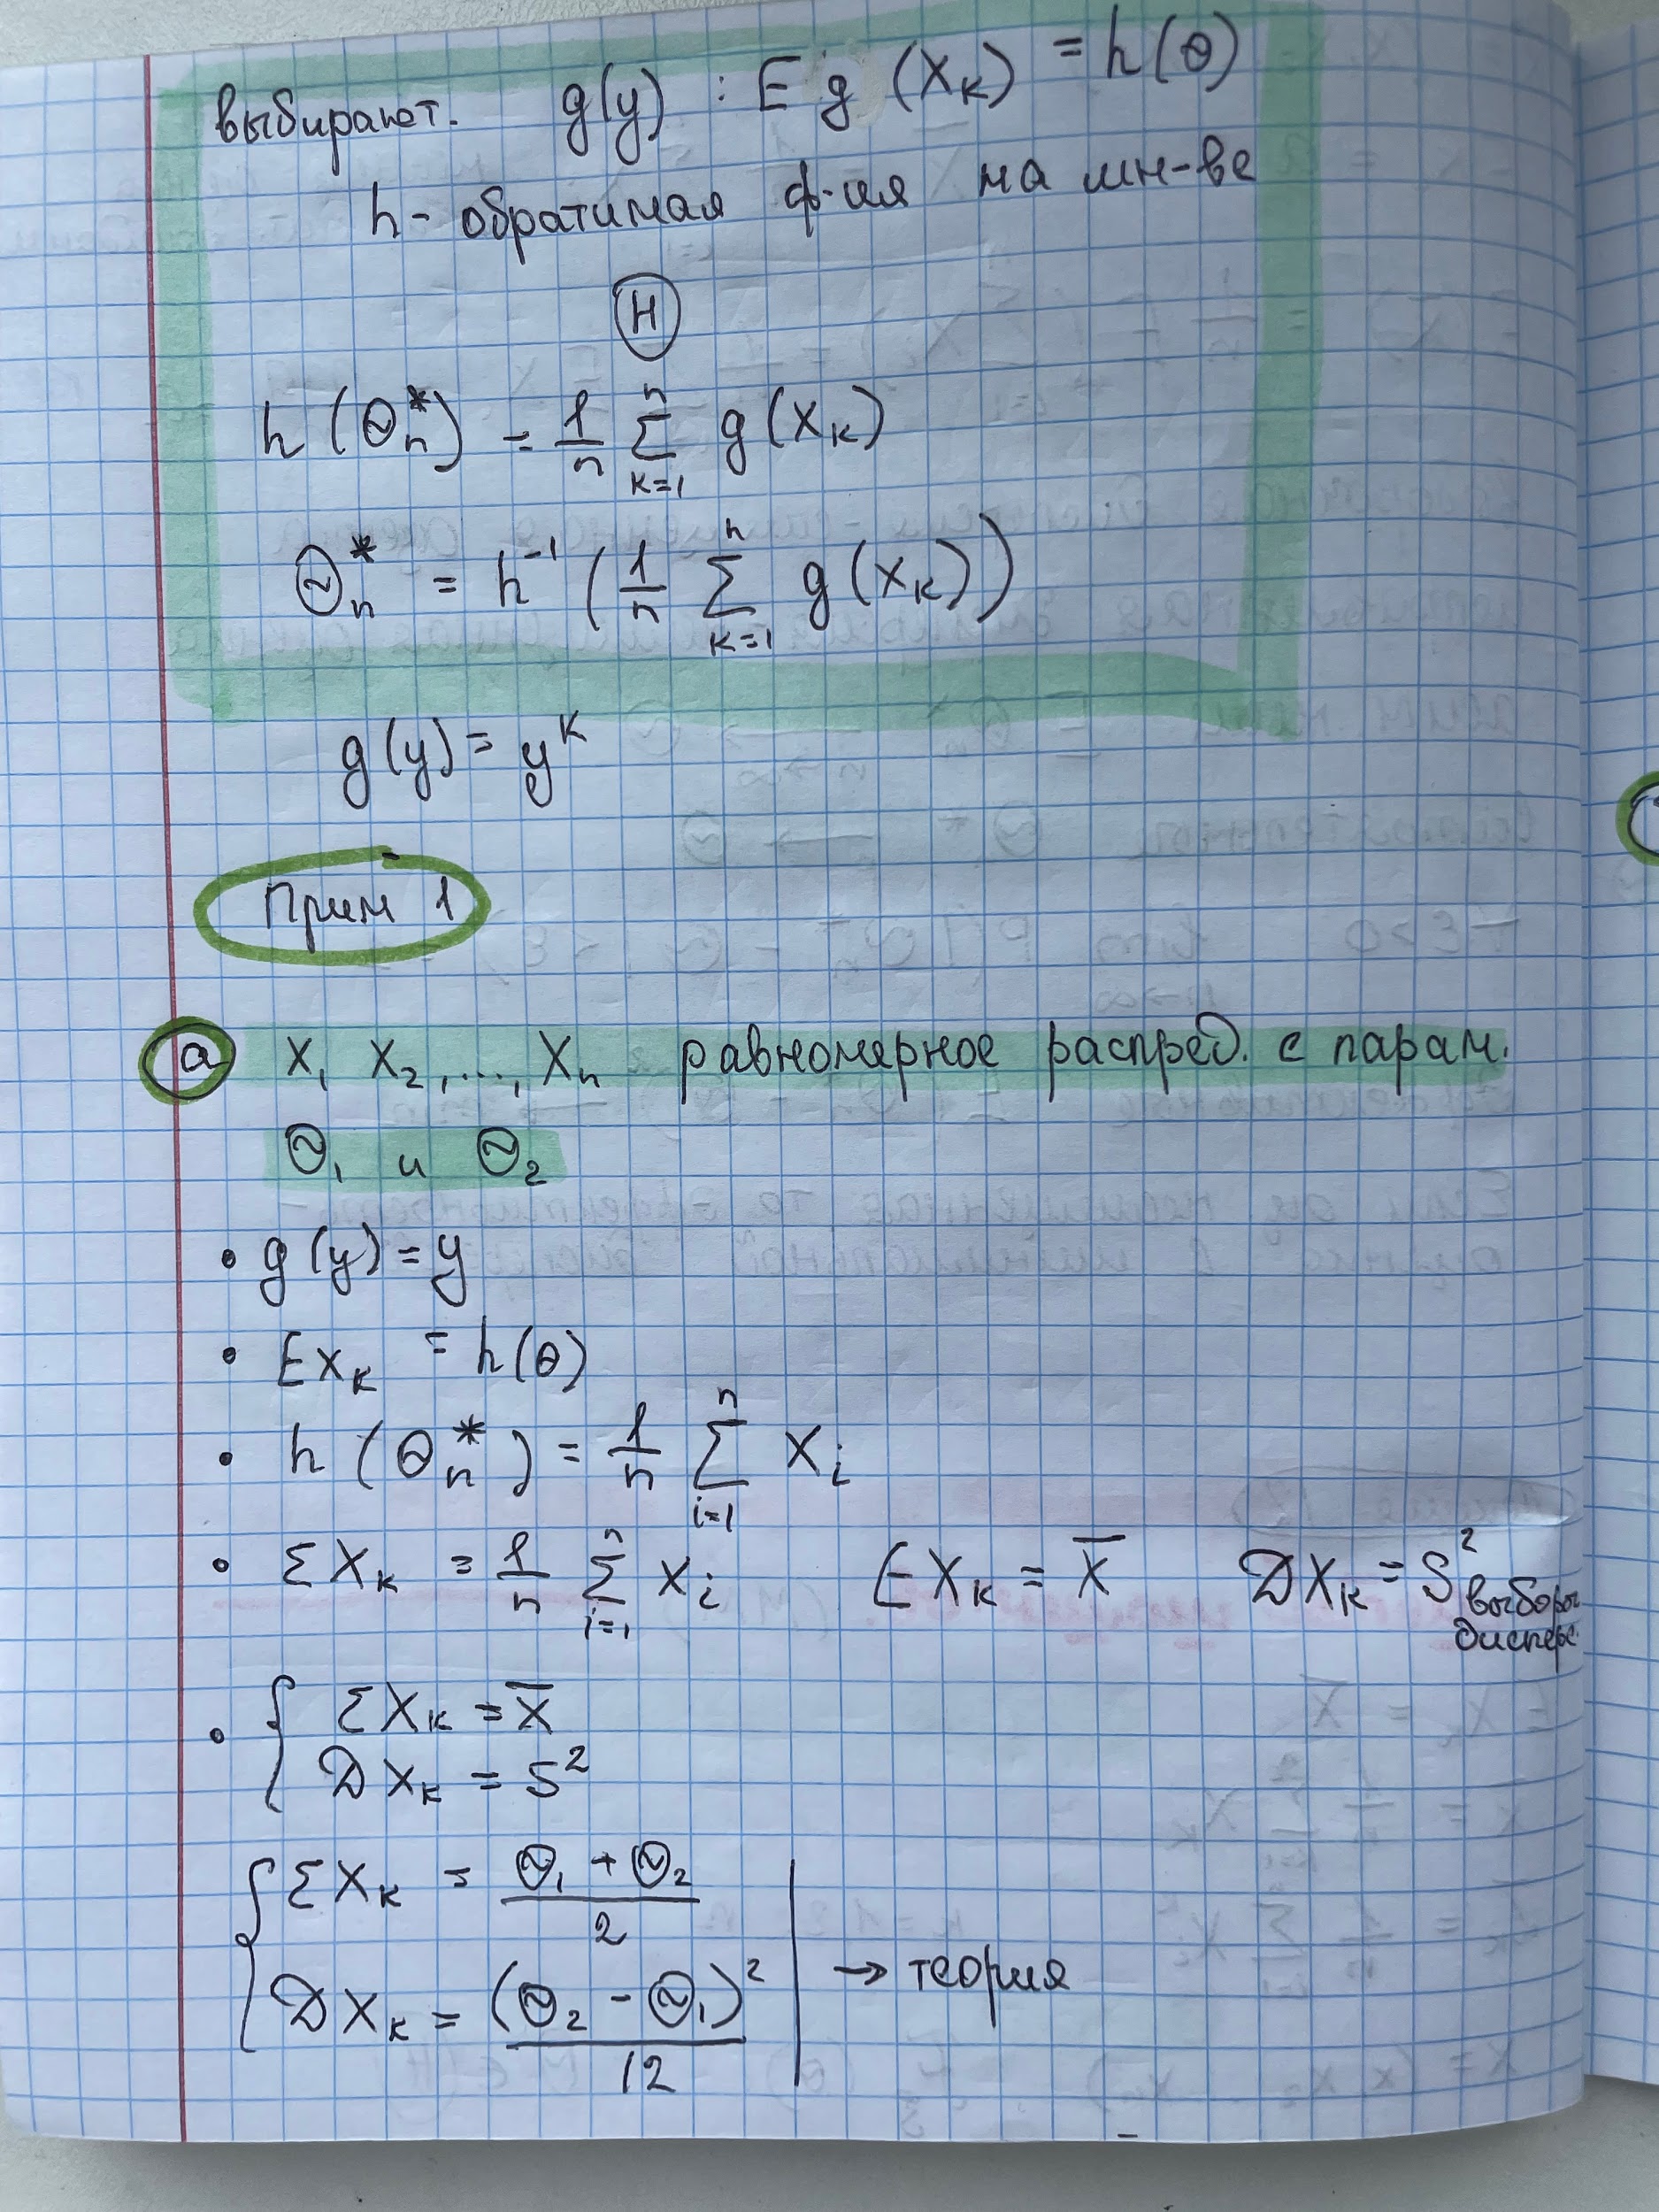 выбирают. g(y) : E g (X_k) = h(θ)
h - обратимая ф-ия на мн-ве
Ⓗ
h (θ_n^*) = 1/n ∑_{k=1}^{n} g(X_k)
Θ_n^* = h^{-1} (1/n ∑_{k=1}^{n} g(X_k))
g(y) = y^k
Прим 1
а X_1 X_2, ..., X_n равномерное распред. с парам.
Θ_1 и Θ_2
• g(y) = y
• EX_k = h(θ)
• h (θ_n^*) = 1/n ∑_{i=1}^{n} X_i
• ΣX_k = 1/n ∑_{i=1}^{n} X_i EX_k = X̅ DX_k = S^2 выборы
дисперс.
• { ΣX_k = X̅
DX_k = S^2
{ ΣX_k = (Θ_1 + Θ_2)/2
DX_k = (Θ_2 - Θ_1)^2/12 | → теория